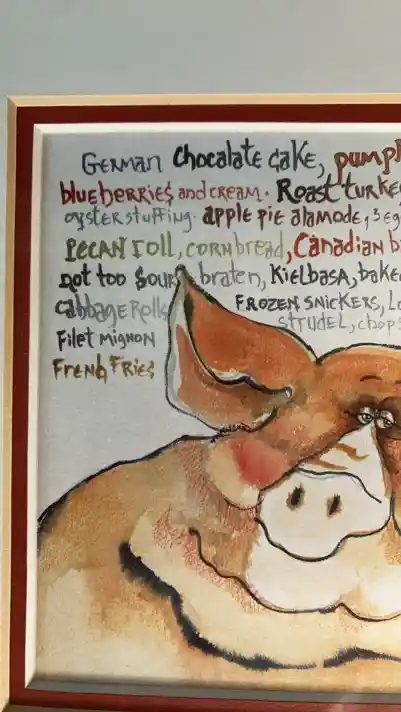 German Chocolate Cake, pump
blueberries and cream. Roast turke
oyster stuffing. apple pie alamode, 3 eg
Pecan roll, corn bread, Canadian b
not too sour braten, Kielbasa, bake
cabbage Rolls FROZEN SNICKERS, L
STRUDEL, chops
Filet MIGNON
French Fries